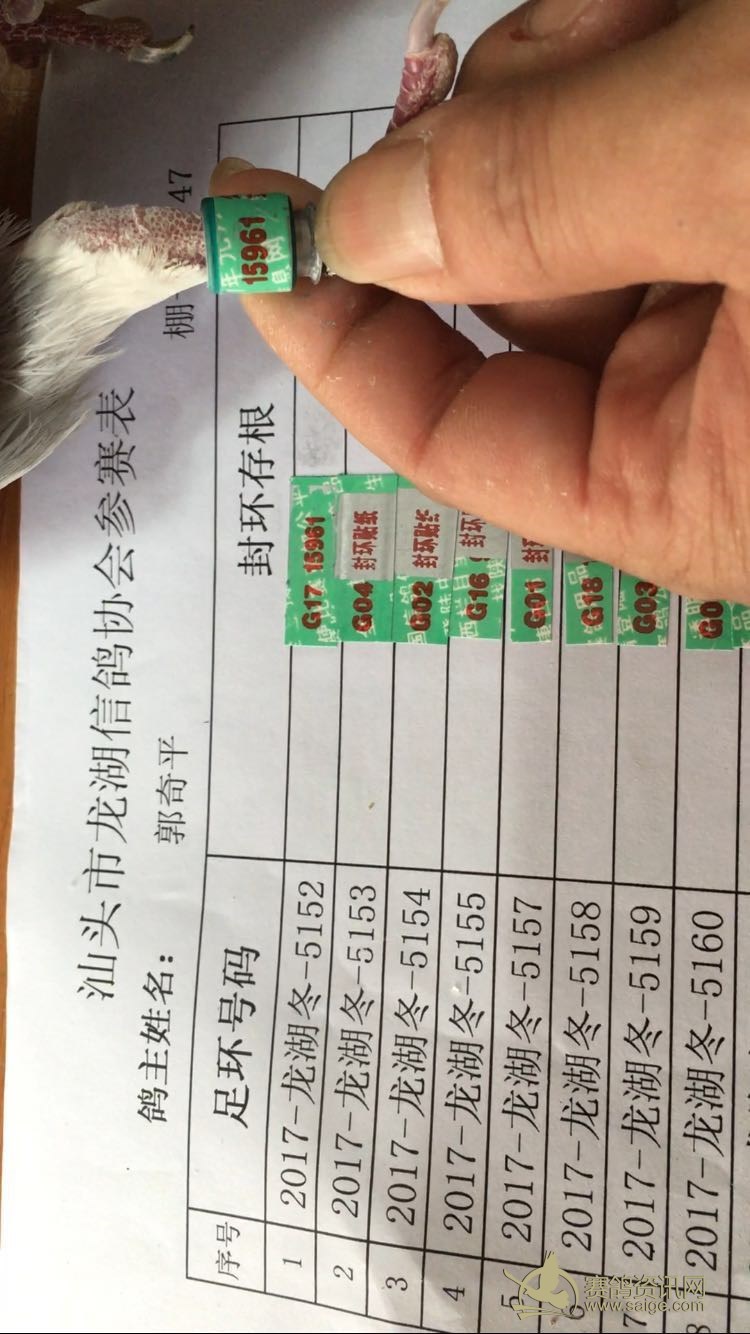 汕头市龙湖信鸽协会参赛表
鸽主姓名： 郭奇平 棚 47
序号 足环号码 封环存根
1 2017-龙湖冬-5152 G17 15961
2 2017-龙湖冬-5153 G04 封环贴纸
3 2017-龙湖冬-5154 G02 封环贴纸
4 2017-龙湖冬-5155 G16 封环
5 2017-龙湖冬-5157 G01 封
6 2017-龙湖冬-5158 G18
7 2017-龙湖冬-5159 G03
8 2017-龙湖冬-5160 G0
15961
赛鸽资讯网
www.saige.com